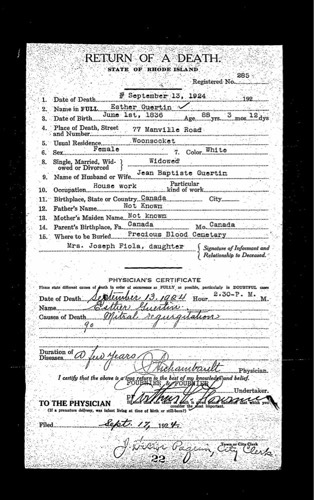 RETURN OF A DEATH.
STATE OF RHODE ISLAND
Registered No. 285
1. Date of Death September 13, 1924 192
2. Name in FULL Esther Guertin ✓
3. Date of Birth June 1st, 1836 Age 88 yrs. 3 mos. 12 dys
4. Place of Death, Street and Number 77 Manville Road
5. Usual Residence Woonsocket
6. Sex Female 7. Color White
8. Single, Married, Widowed or Divorced } Widowed
9. Name of Husband or Wife Jean Baptiste Guertin
10. Occupation House work Particular kind of work
11. Birthplace, State or Country Canada City
12. Father's Name Not Known
13. Mother's Maiden Name Not known
14. Parent's Birthplace, Fa. Canada Mo. Canada
15. Where to be Buried Precious Blood Cemetary
Mrs. Joseph Fiola, daughter { Signature of Informant and Relationship to Deceased.
PHYSICIAN'S CERTIFICATE
Please state different causes of death in order of occurrence as FULLY as possible, particularly in DOUBTFUL cases
Date of Death September 13, 1924 Hour 2.30-P. M. M.
Name Esther Guertin
Causes of Death Mitral regurgitation
Duration of Diseases a few years
Archambault Physician.
I certify that the above is a true return to the best of my knowledge and belief.
FOURNIER & FOURNIER
Undertaker.
TO THE PHYSICIAN
consider the most important.
(If a premature delivery, was infant living at time of birth or still-born?)
Filed Sept. 17, 1924
City Clerk
Town or City Clerk
22